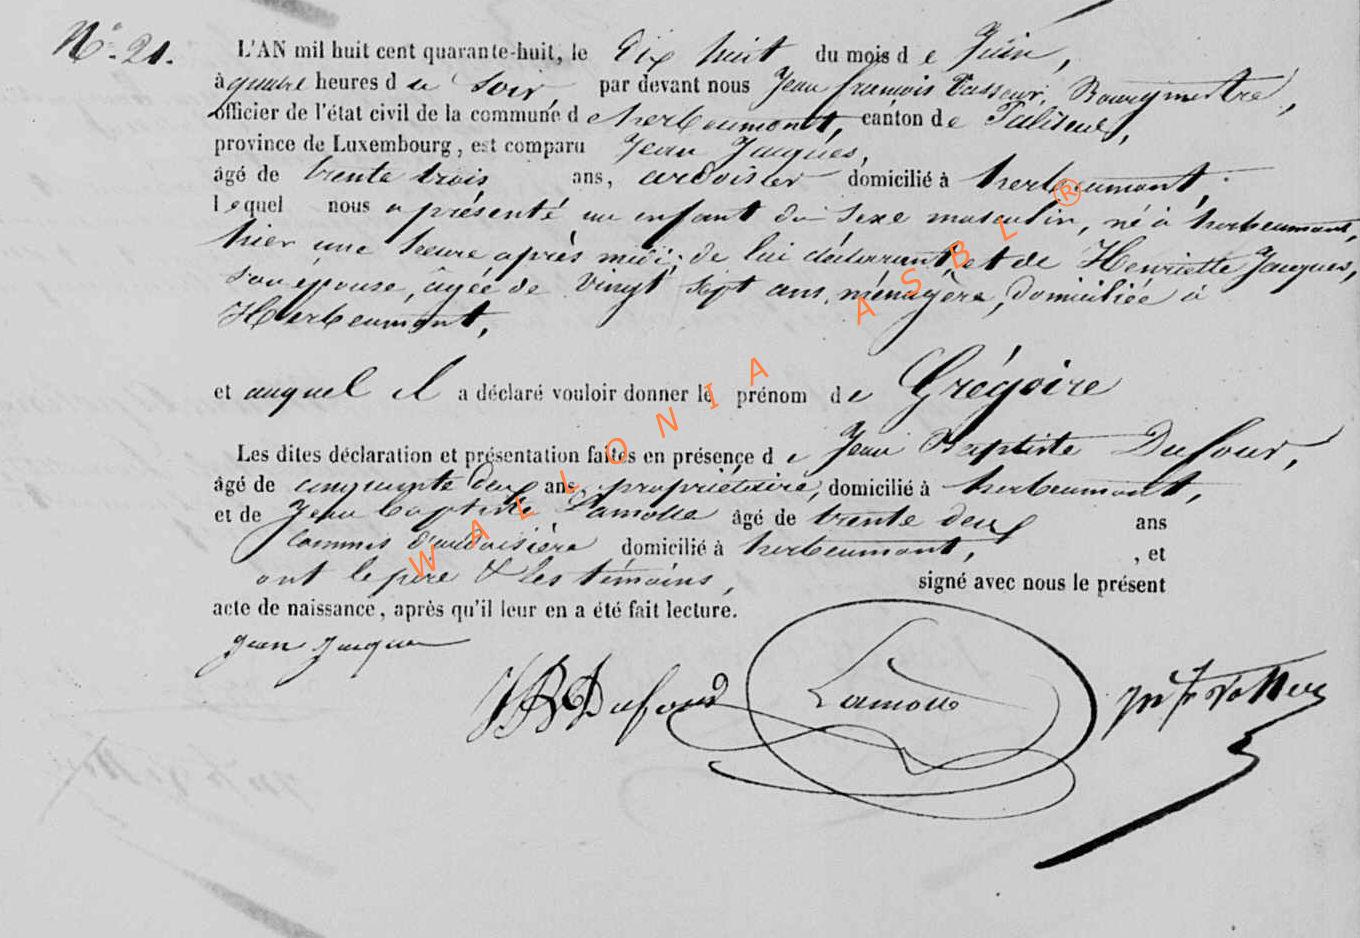 N° 21.
L'AN mil huit cent quarante-huit, le Dix huit du mois d e Juin,
à quatre heures d u Soir par devant nous Jean françois Vasseur, Bourgmestre,
officier de l'état civil de la commune d e herbeumont, canton de Paliseul,
province de Luxembourg, est comparu Jean Jacques,
âgé de trente trois ans, ardoisier domicilié à herbeumont,
lequel nous a présenté un enfant du Sexe masculin, né à herbeumont,
hier une heure après midi, de lui déclarant et de Henriette Jacques,
son épouse, âgée de vingt sept ans, ménagère, domiciliée à
Herbeumont,
et auquel il a déclaré vouloir donner le prénom d e Grégoire
Les dites déclaration et présentation faites en présence d e Jean Baptiste Dufour,
âgé de cinquante deux ans, propriétaire, domicilié à herbeumont,
et de Jean baptiste Lamotte âgé de trente deux ans
Commis d'ardoisière domicilié à herbeumont, , et
ont le père & les témoins, signé avec nous le présent
acte de naissance, après qu'il leur en a été fait lecture.
Jean Jacques
JB Dufour
Lamotte
WALLONIA ASBL ®